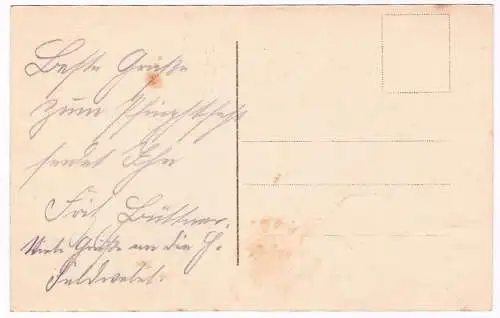 Beste Grüße
zum Pfingstfest
sendet Ihr
Fritz Büttner.
Viele Grüße an die H.
Feldwebel.